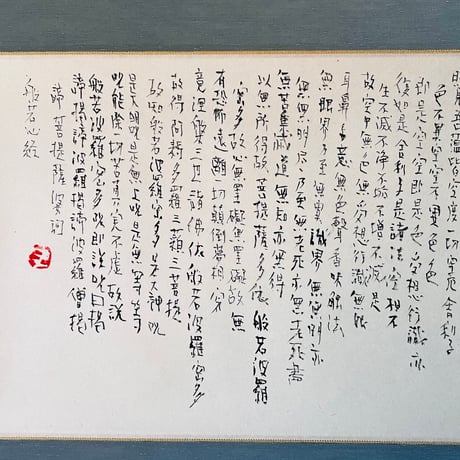 照見五蘊皆空度一切苦厄舍利子
色不異空空不異色色
即是空空即是色受想行識亦
復如是舍利子是諸法空相不
生不滅不垢不淨不增不減是
故空中無色無受想行識無眼
耳鼻舌身意無色聲香味觸法
無眼界乃至無意識界無無明亦
無無明尽乃至無老死亦無老死盡
無苦集滅道無知亦無得
以無所得故菩提薩多依般若波羅
蜜多故心無罣礙無罣礙故無
有恐怖遠離一切顛倒夢想究
竟涅槃三世諸佛依般若波羅蜜多
故得阿耨多羅三藐三菩提
故知般若波羅蜜多是大神呪
是大明呪是無上呪是無等等
呪能除一切苦真実不虚故説
般若波羅蜜多呪即説呪曰揭
諦揭諦波羅揭諦波羅僧揭
諦菩提薩婆訶
般若心経